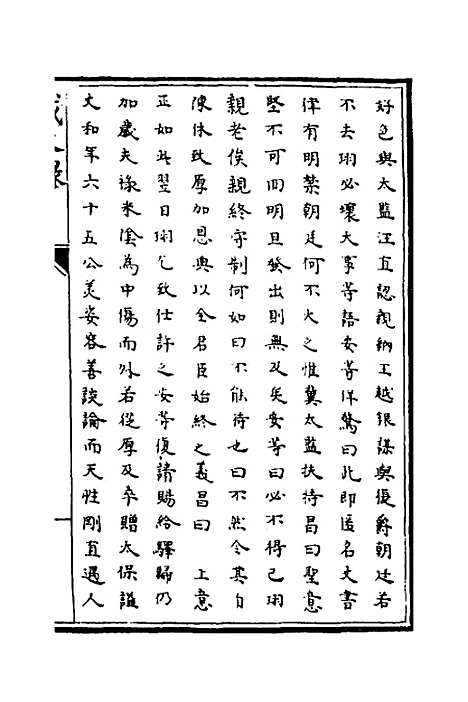 好色與太監汪直認親納王越銀謀與復爵朝廷若
不去珝必壞大事等語安等佯驚曰此即匿名文書
律有明禁朝廷何不火之惟冀太監扶持昌曰聖意
堅不可回明旦發出則無及矣安等曰必不得已珝
親老俟親終守制何如曰不能待也曰不然令其自
陳休致厚加恩典以全君臣始終之義昌曰　上意
正如此翌日珝乞致仕許之安等復請賜給驛歸仍
加歲夫祿米陰為中傷而外若從厚及卒贈太保諡
文和年六十五公美姿容善談論而天性剛直遇人